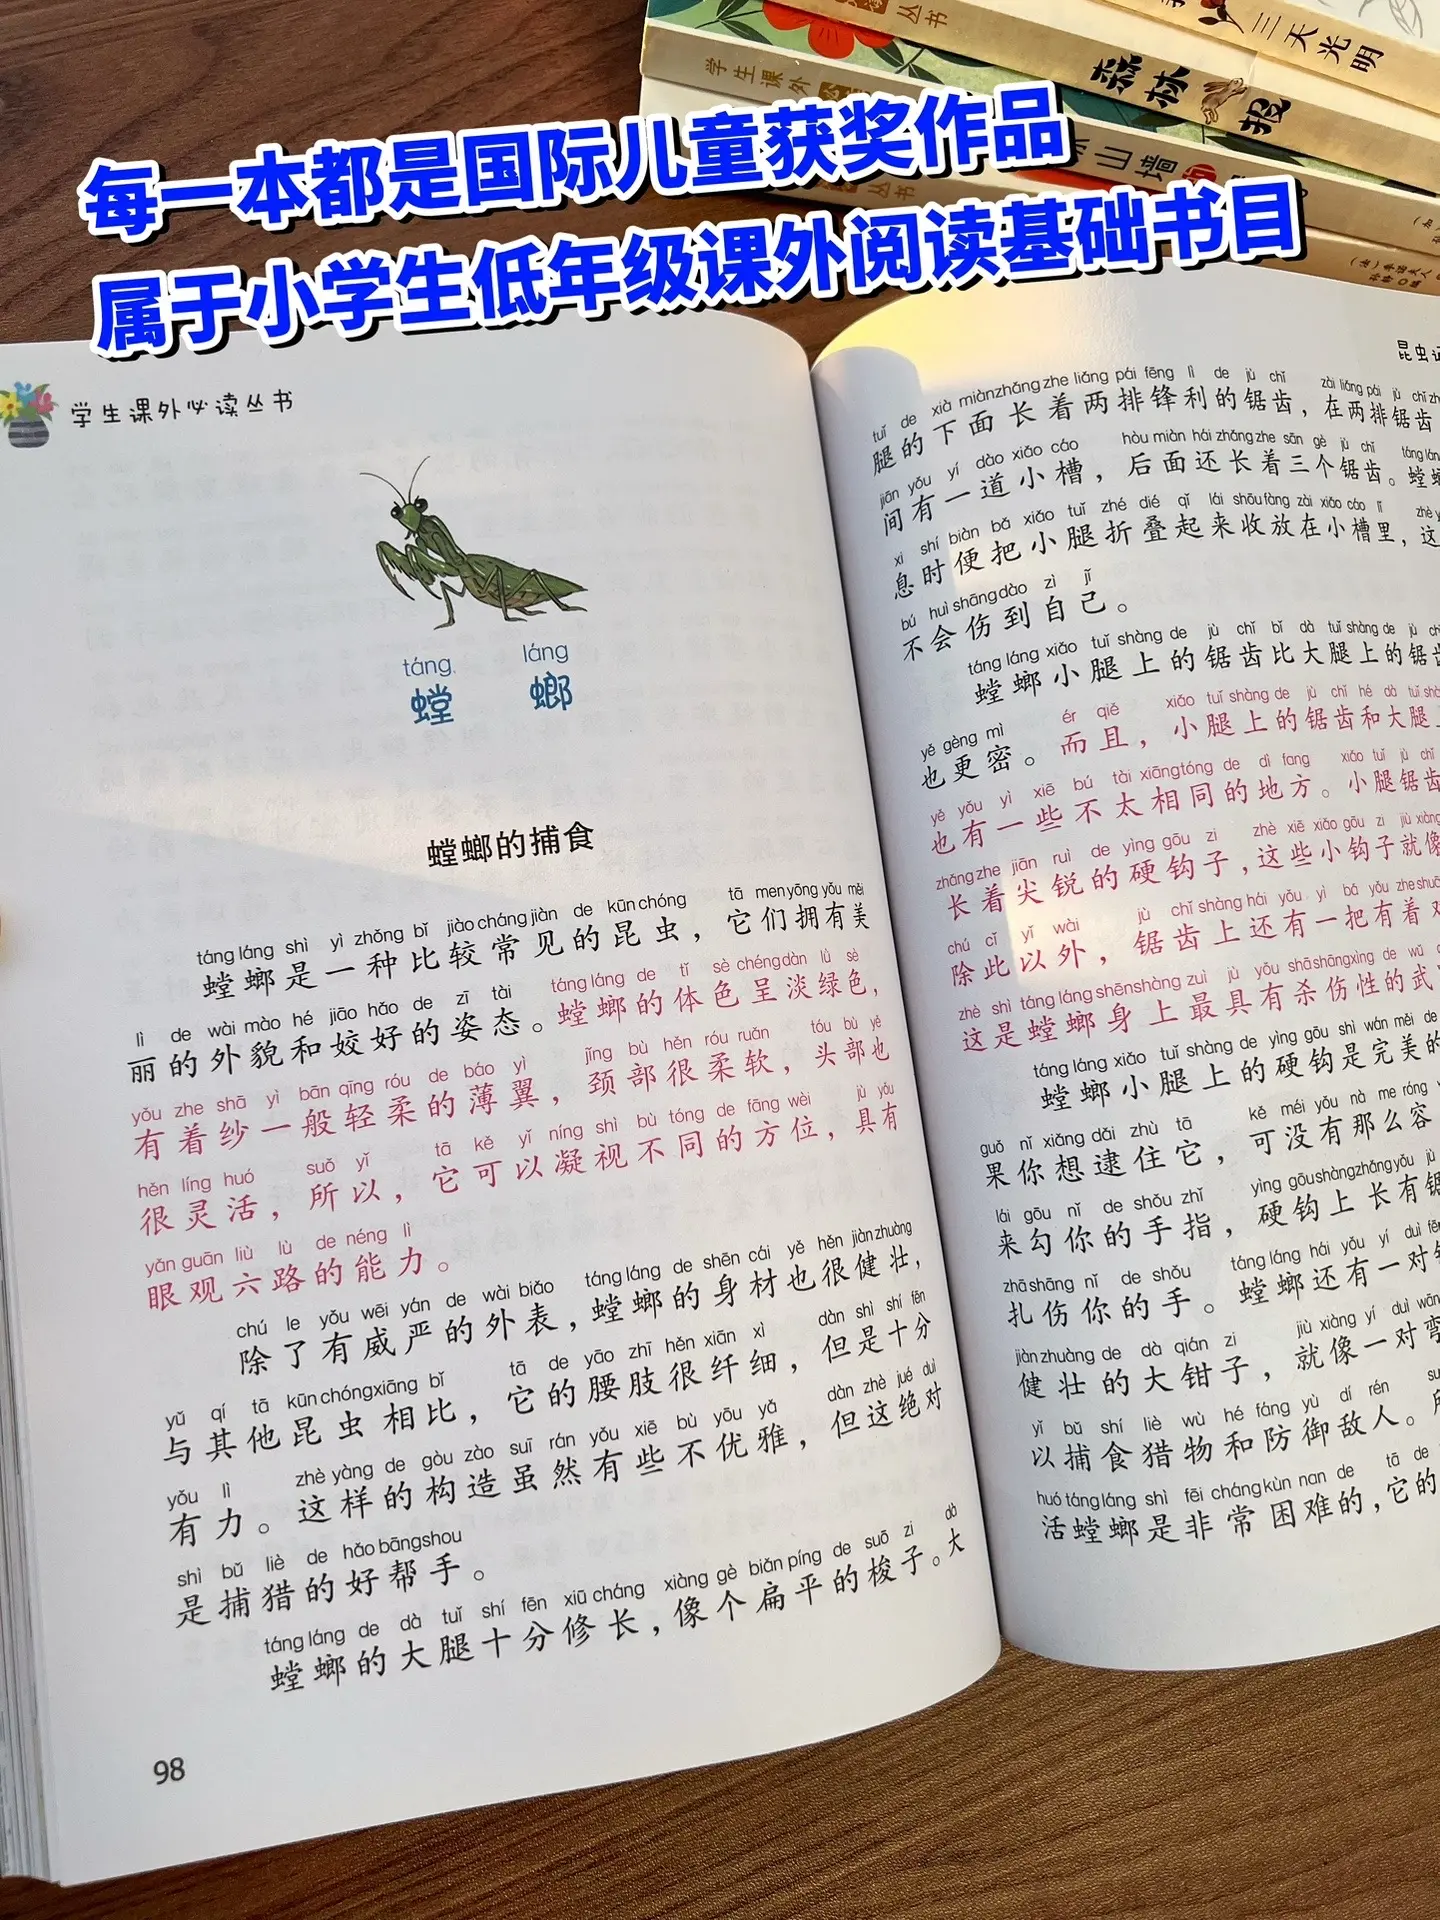 三天光明
丛书
森林报
学生课外
山墙
丛书
每一本都是国际儿童获奖作品
属于小学生低年级课外阅读基础书目
学生课外必读丛书
táng láng
螳螂
螳螂的捕食
táng láng shì yì zhǒng bǐ jiào cháng jiàn de kūn chóng tā men yōng yǒu měi
螳螂是一种比较常见的昆虫，它们拥有美
lì de wài mào hé jiāo hǎo de zī tài táng láng de tǐ sè chéng dàn lǜ sè
丽的外貌和姣好的姿态。螳螂的体色呈淡绿色，
yǒu zhe shā yì bān qīng róu de báo yì jǐng bù hěn róu ruǎn tóu bù yě
有着纱一般轻柔的薄翼，颈部很柔软，头部也
hěn líng huó suǒ yǐ tā kě yǐ níng shì bù tóng de fāng wèi jù yǒu
很灵活，所以，它可以凝视不同的方位，具有
yǎn guān liù lù de néng lì
眼观六路的能力。
chú le yǒu wēi yán de wài biǎo táng láng de shēn cái yě hěn jiàn zhuàng
除了有威严的外表，螳螂的身材也很健壮，
yǔ qí tā kūn chóng xiāng bǐ tā de yāo zhī hěn xiān xì dàn shì shí fēn
与其他昆虫相比，它的腰肢很纤细，但是十分
yǒu lì zhè yàng de gòu zào suī rán yǒu xiē bù yōu yǎ dàn zhè jué duì
有力。这样的构造虽然有些不优雅，但这绝对
shì bǔ liè de hǎo bāng shou
是捕猎的好帮手。
táng láng de dà tuǐ shí fēn xiū cháng xiàng gè biǎn píng de suō zi dà
螳螂的大腿十分修长，像个扁平的梭子。大
98
昆虫记
tuǐ de xià miàn zhǎng zhe liǎng pái fēng lì de jù chǐ zài liǎng pái jù chǐ
腿的下面长着两排锋利的锯齿，在两排锯齿
jiān yǒu yí dào xiǎo cáo hòu miàn hái zhǎng zhe sān gè jù chǐ táng láng
间有一道小槽，后面还长着三个锯齿。螳螂
xi shí biàn bǎ xiǎo tuǐ zhé dié qǐ lái shōu fàng zài xiǎo cáo lǐ zhè
息时便把小腿折叠起来收放在小槽里，这
bú huì shāng dào zì jǐ
不会伤到自己。
táng láng xiǎo tuǐ shàng de jù chǐ bǐ dà tuǐ shàng de jù chǐ
螳螂小腿上的锯齿比大腿上的锯齿
yě gèng mì ér qiě xiǎo tuǐ shàng de jù chǐ hé dà tuǐ
也更密。而且，小腿上的锯齿和大腿
yě yǒu yì xiē bú tài xiāng tóng de dì fang xiǎo tuǐ jù chǐ
也有一些不太相同的地方。小腿锯齿
zhǎng zhe jiān ruì de yìng gōu zi zhè xiē xiǎo gōu zi jiù xiàng
长着尖锐的硬钩子，这些小钩子就像
chú cǐ yǐ wài jù chǐ shàng hái yǒu yì bǎ yǒu zhe
除此以外，锯齿上还有一把有着
zhè shì táng láng shēn shàng zuì jù yǒu shā shāng xìng de wǔ
这是螳螂身上最具有杀伤性的武
táng láng xiǎo tuǐ shàng de yìng gōu shì wán měi de
螳螂小腿上的硬钩是完美的
guǒ nǐ xiǎng dǎi zhù tā kě méi yǒu nà me róng
果你想逮住它，可没有那么容
lái gōu nǐ de shǒu zhǐ yìng gōu shàng zhǎng yǒu jù
来勾你的手指，硬钩上长有锯
zhā shāng nǐ de shǒu táng láng hái yǒu yí duì
扎伤你的手。螳螂还有一对
jiàn zhuàng de dà qián zi jiù xiàng yí duì wān
健壮的大钳子，就像一对弯
yǐ bǔ shí liè wù hé fáng yù dí rén
以捕食猎物和防御敌人。
huó táng láng shì fēi cháng kùn nan de tā de
活螳螂是非常困难的，它的